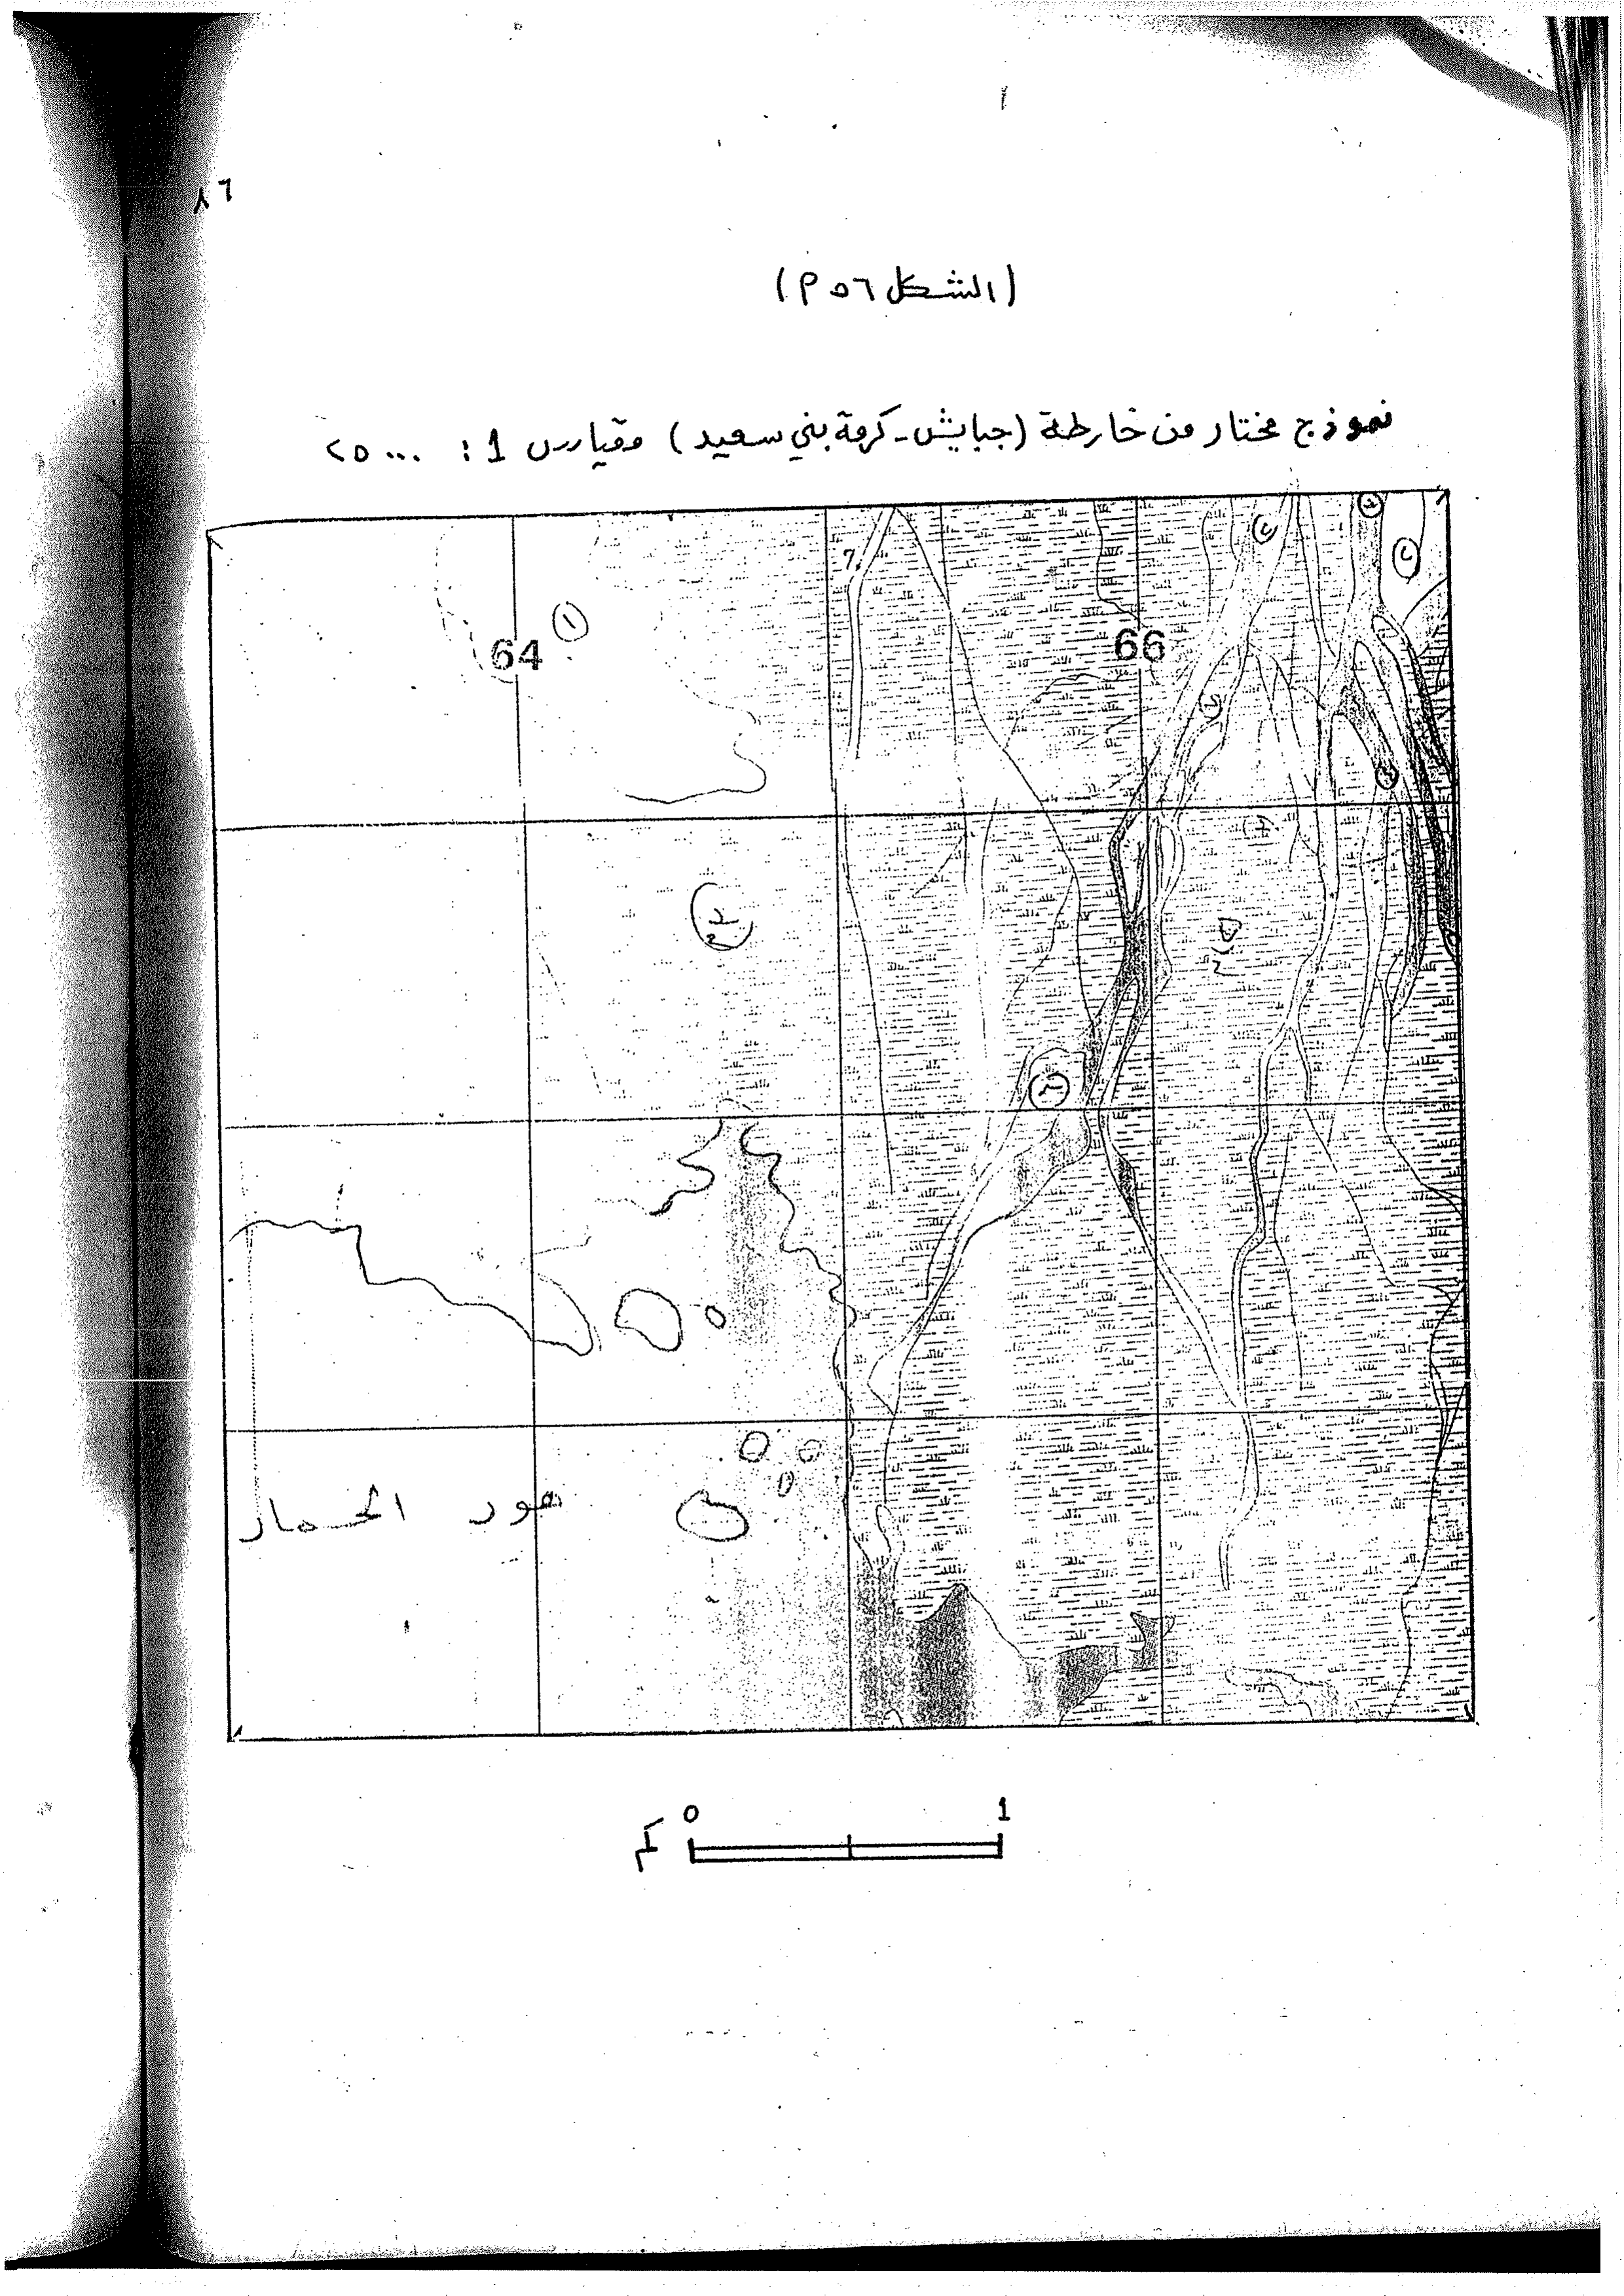 ٨٦
(الشكل ٥٦ م)
نموذج مختار من خارطة (جبايش - كرمة بني سعيد) مقياس 1 : ٢٥٠٠٠
64
١
66
هور الحمار
0 1
كم